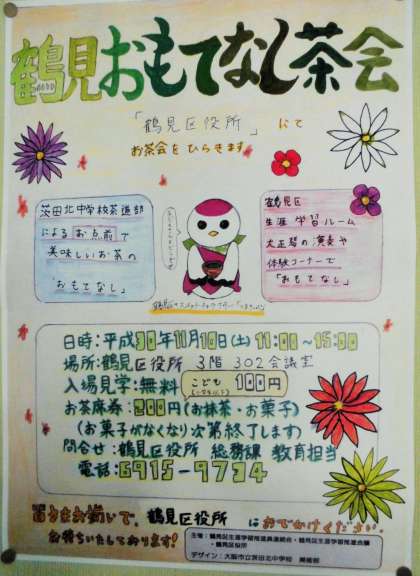 鶴見おもてなし茶会
「鶴見区役所」にて
お茶会をひらきます
茨田北中学校茶道部
によるお点前で
美味しいお茶の
「おもてなし」
鶴見区
生涯学習ルーム
大正琴の演奏や
体験コーナーで
「おもてなし」
日時:平成30年11月10日(土)11:00~15:00
場所:鶴見区役所 3階 302会議室
入場見学:無料
こども
100円
お茶席券:200円(お抹茶・お菓子)
(お菓子がなくなり次第終了します)
問合せ:鶴見区役所 総務課 教育担当
電話:6915-9734
皆さまお揃いで、鶴見区役所
におでかけください。
お待ちいたしております!
主催:鶴見区生涯学習推進員連絡会・鶴見区生涯学習推進会議
・鶴見区役所
デザイン:大阪市立茨田北中学校 美術部